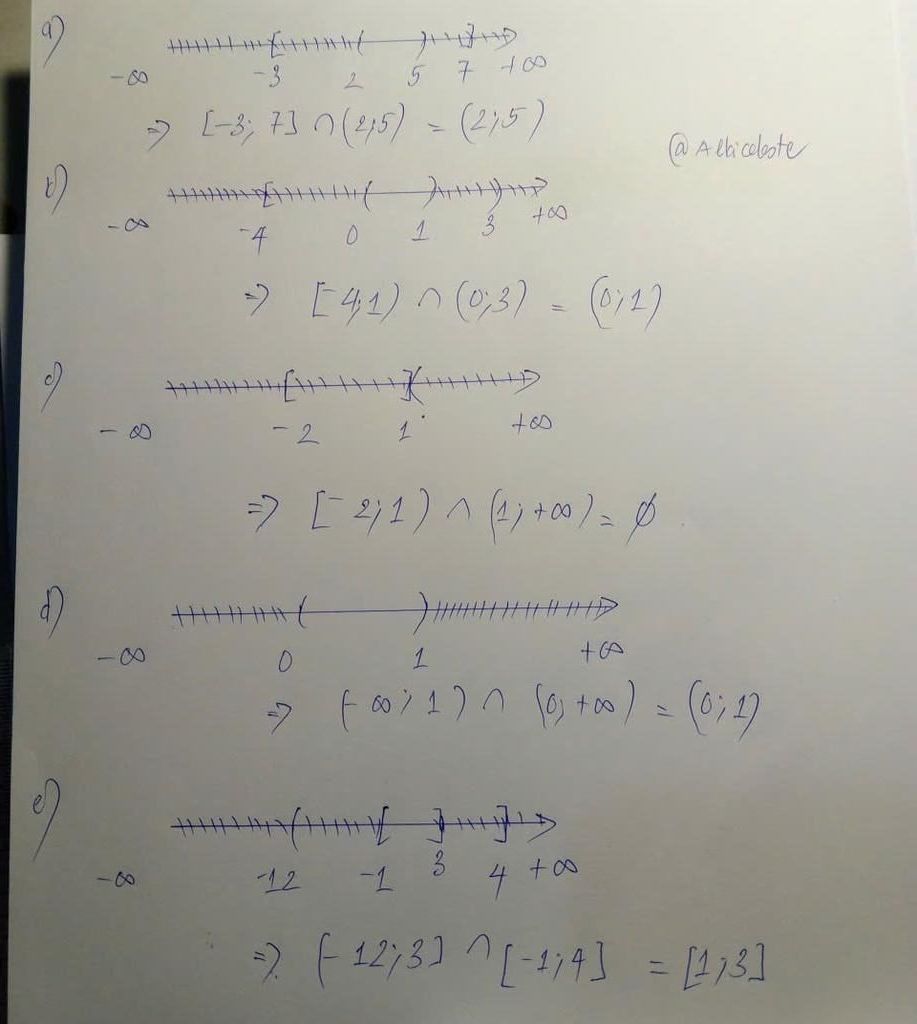 a)
-∞ -3 2 5 7 +∞
=> [-3; 7] ∩ (2;5) = (2;5)
@Albiceleste
b)
-∞ -4 0 1 3 +∞
=> [-4;1) ∩ (0;3) = (0;1)
c)
-∞ -2 1 +∞
=> [-2;1) ∩ (1;+∞) = ∅
d)
-∞ 0 1 +∞
=> (-∞;1) ∩ (0;+∞) = (0;1)
e)
-∞ -12 -1 3 4 +∞
=> (-12;3] ∩ [-1;4] = [1;3]